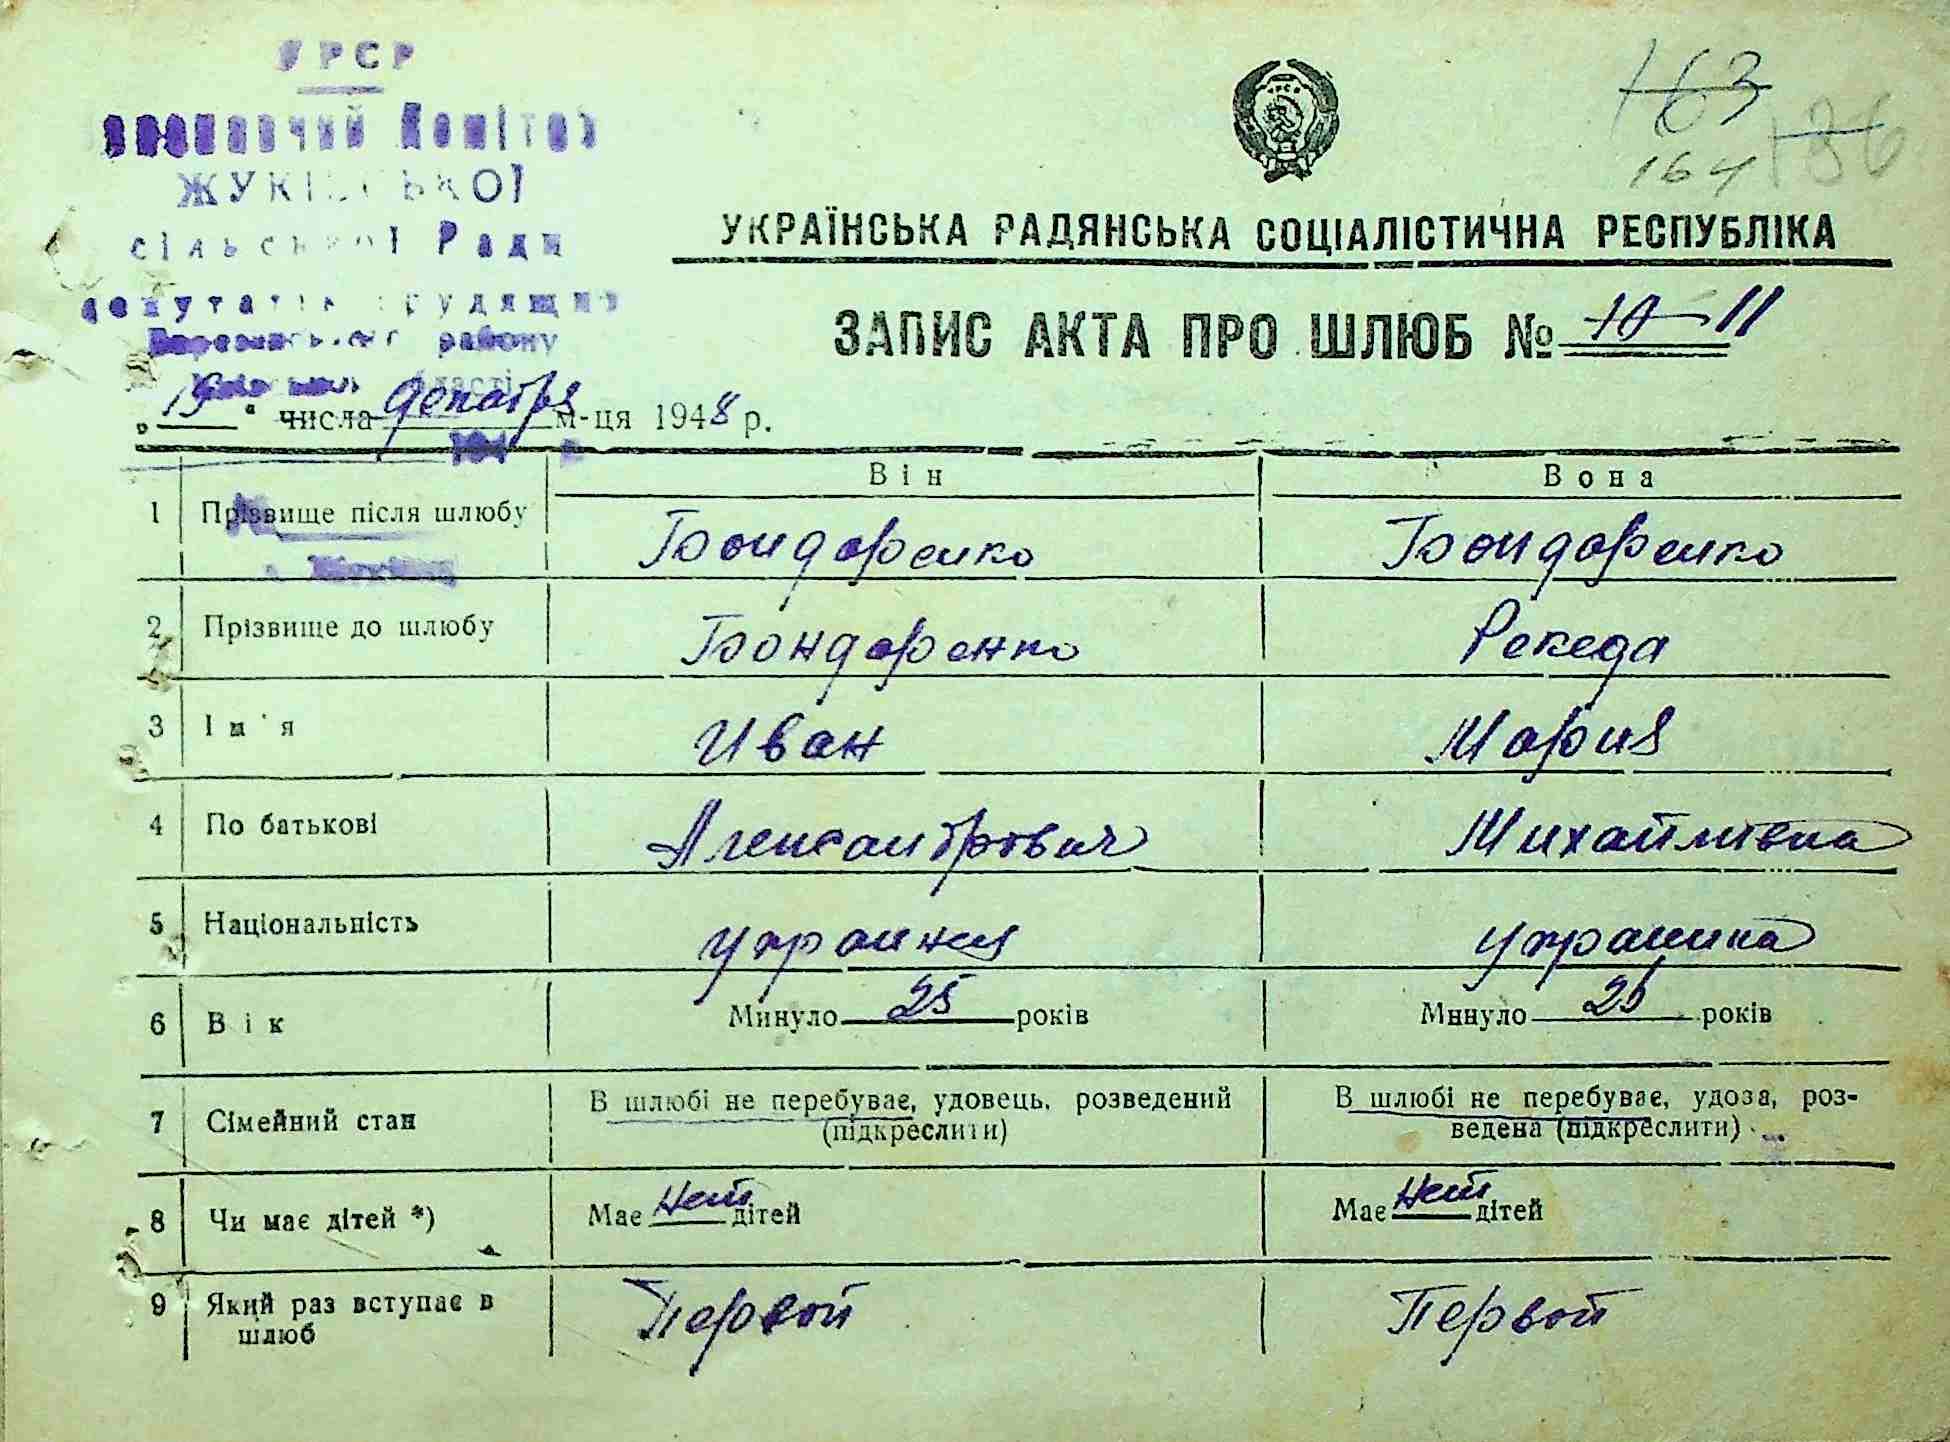 УРСР
Виконавчий Комітет
ЖУКІВСЬКОЇ
сільської Ради
депутатів трудящих
району
області
163
136
164
УРСР
УКРАЇНСЬКА РАДЯНСЬКА СОЦІАЛІСТИЧНА РЕСПУБЛІКА
ЗАПИС АКТА ПРО ШЛЮБ № 10 11
„19“ числа декабря м-ця 1948 р.
194
Він Вона
1 Прізвище після шлюбу Бондаренко Бондаренко
2 Прізвище до шлюбу Бондаренко Рекеда
3 Ім'я Иван Мария
4 По батькові Александрович Михайлівна
5 Національність украинец украинка
6 Вік Минуло 25 років Минуло 25 років
7 Сімейний стан В шлюбі не перебуває, удовець, розведений (підкреслити) В шлюбі не перебуває, удова, роз-
ведена (підкреслити)
8 Чи має дітей *) Має нет дітей Має нет дітей
9 Який раз вступає в шлюб Первой Первой